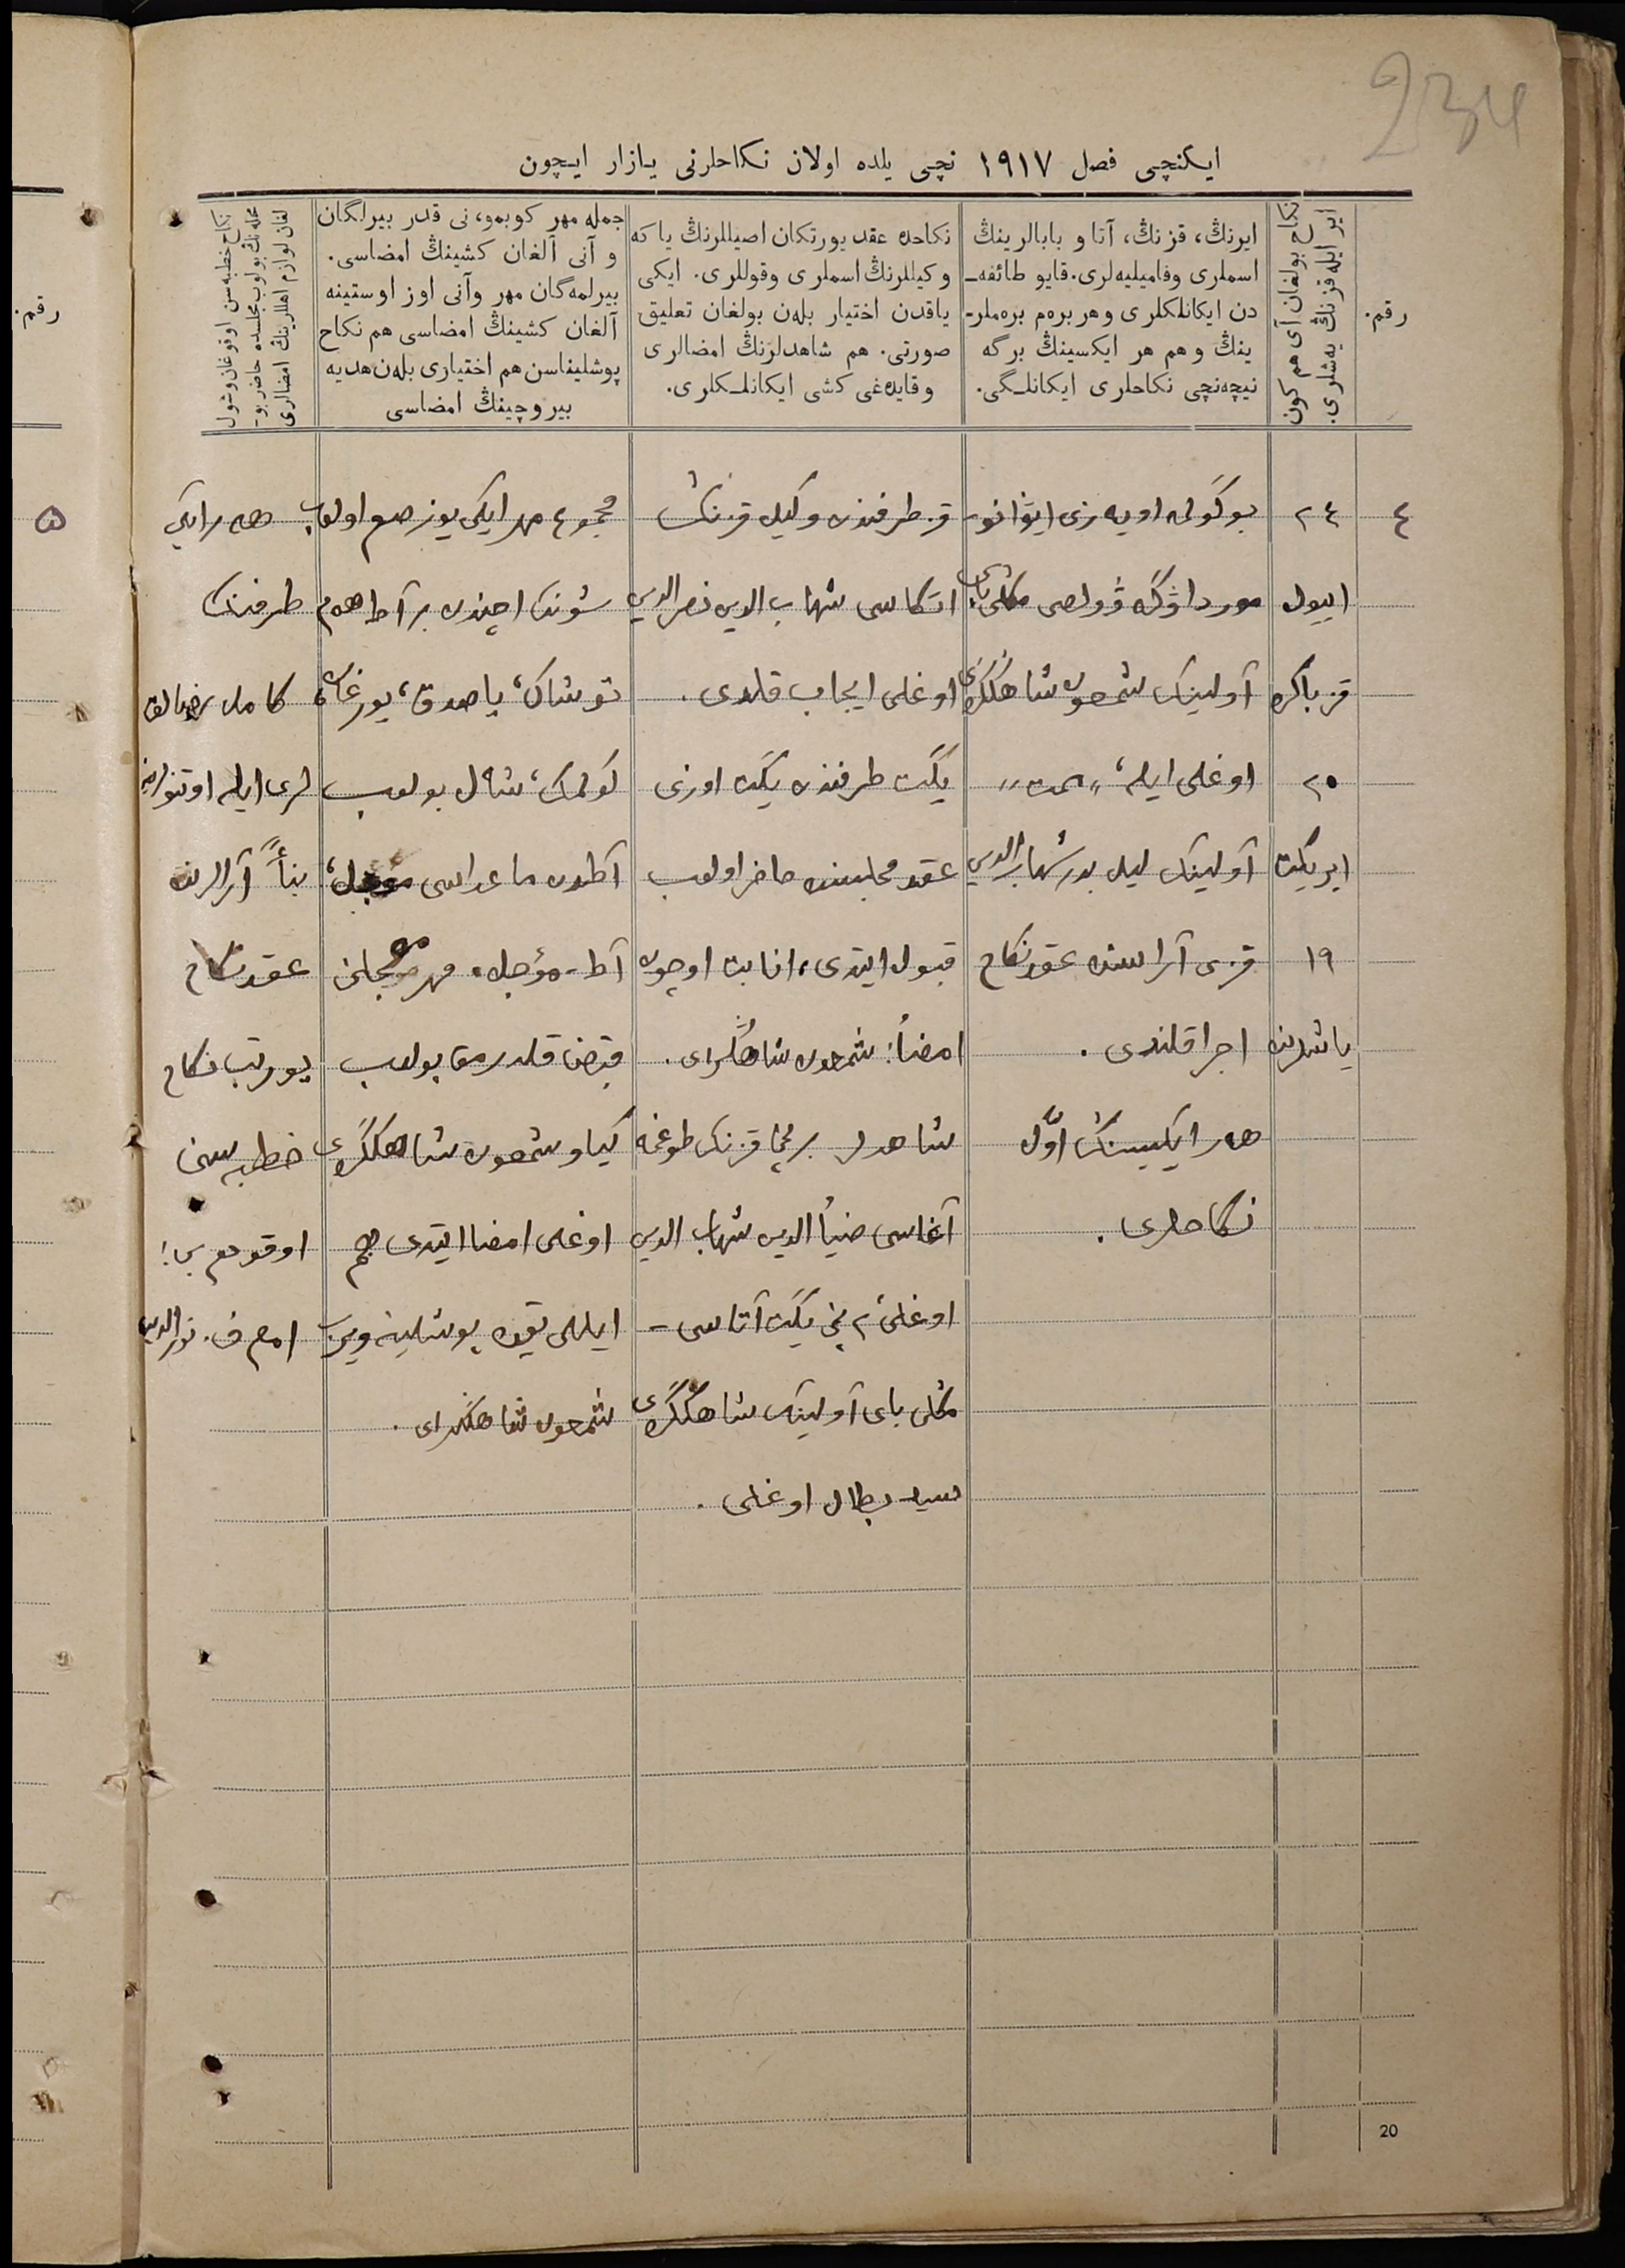 234
ایکنچی فصل ۱۹۱۷ نچی یلده اولان نکاحلرنی یازار ایچون
رقم.
نکاح بولغان آی هم کون
ایر ایله قزنڭ یه‌شلری.
ایرنڭ، قزنڭ، آتا و بابالرینڭ
اسملری وفامیلیه‌لری. قایو طائفه‌ـ
دن ایکانلکلری و هر بره‌م بره‌ملرـ
ینڭ و هم هر ایکسینڭ برگه
نیچه‌نچی نکاحلری ایکانلـگی.
نکاحده عقد یورتکان اصیللرنڭ یا که
وکیللرنڭ اسملری وقوللری. ایکی
یاقدن اختیار بله‌ن بولغان تعلیق
صورتی. هم شاهدلرنڭ امضالری
و قایده‌غی کشی ایکانلـکلری.
جمله مهر کوبمو، نی قدر بیرلگان
و آنی آلغان کشینڭ امضاسی.
بیرلمه‌گان مهر وآنی اوز اوستینه
آلغان کشینڭ امضاسی هم نکاح
پوشلیناسن هم اختیاری بله‌ن هدیه
بیروچینڭ امضاسی
نکاح خطبه‌سن اوقوغان وشول
محله‌نڭ بولوب مجلسده حاضر بوـ
لغان لوازم اهللرینڭ امضالری
رقم.
٤
٢٤
اییول
قز باکره
٢٥
ایر یکیت
١٩
یاشدن
بوگولمه اویه‌زی ایوانوـ
آولینڭ شمعون شاهگری
اوغلی ایله،
آولینڭ لیلی بدر شهاب الدین
قزی آراسنده عقد نکاح
اجرا قلندی.
هر ایکیسینڭ اوّل
نکاحلری.
قز طرفندن وکیل قزنڭ
اتکاسی شهاب الدین نصر الدین
اوغلی ایجاب قلدی.
یگت طرفندن یگت اوزی
عقد مجلسنده حاضر اولوب
قبول ایتدی، اثبات اوچون
امضأ: شمعون شاهگرای.
شاهدلر برنچی قزنڭ طوغمه
آغاسی ضیأ الدین شهاب الدین
اوغلی ٢ نچی یگت آتاسی -
مڭلی بای آولینڭ شاهگری
سید بطال اوغلی.
مجموع مهر ایکی یوز صوم اولوب
شونڭ اچنده بر آط هم
توشاك، یاصدق، یورغان،
کولمك، شال بولوب
آطدن ماعداسی معجل،
آط - مؤجل. مهر معجلنی
قبض قلدرمق بولوب
کیاو شمعون شاهگری
اوغلی امضا ایتدی هم
ایللی تیین پوشلینه ویروب
شمعون شاهگرای.
هر ایکی
طرفنڭ
کامل رضالق
لری ایله اوتنولرینه
بنأً آرالرنده
عقد نکاح
یورتب نکاح
خطبه‌سنی
اوقودم
امام ف. نورالدین
٥
20